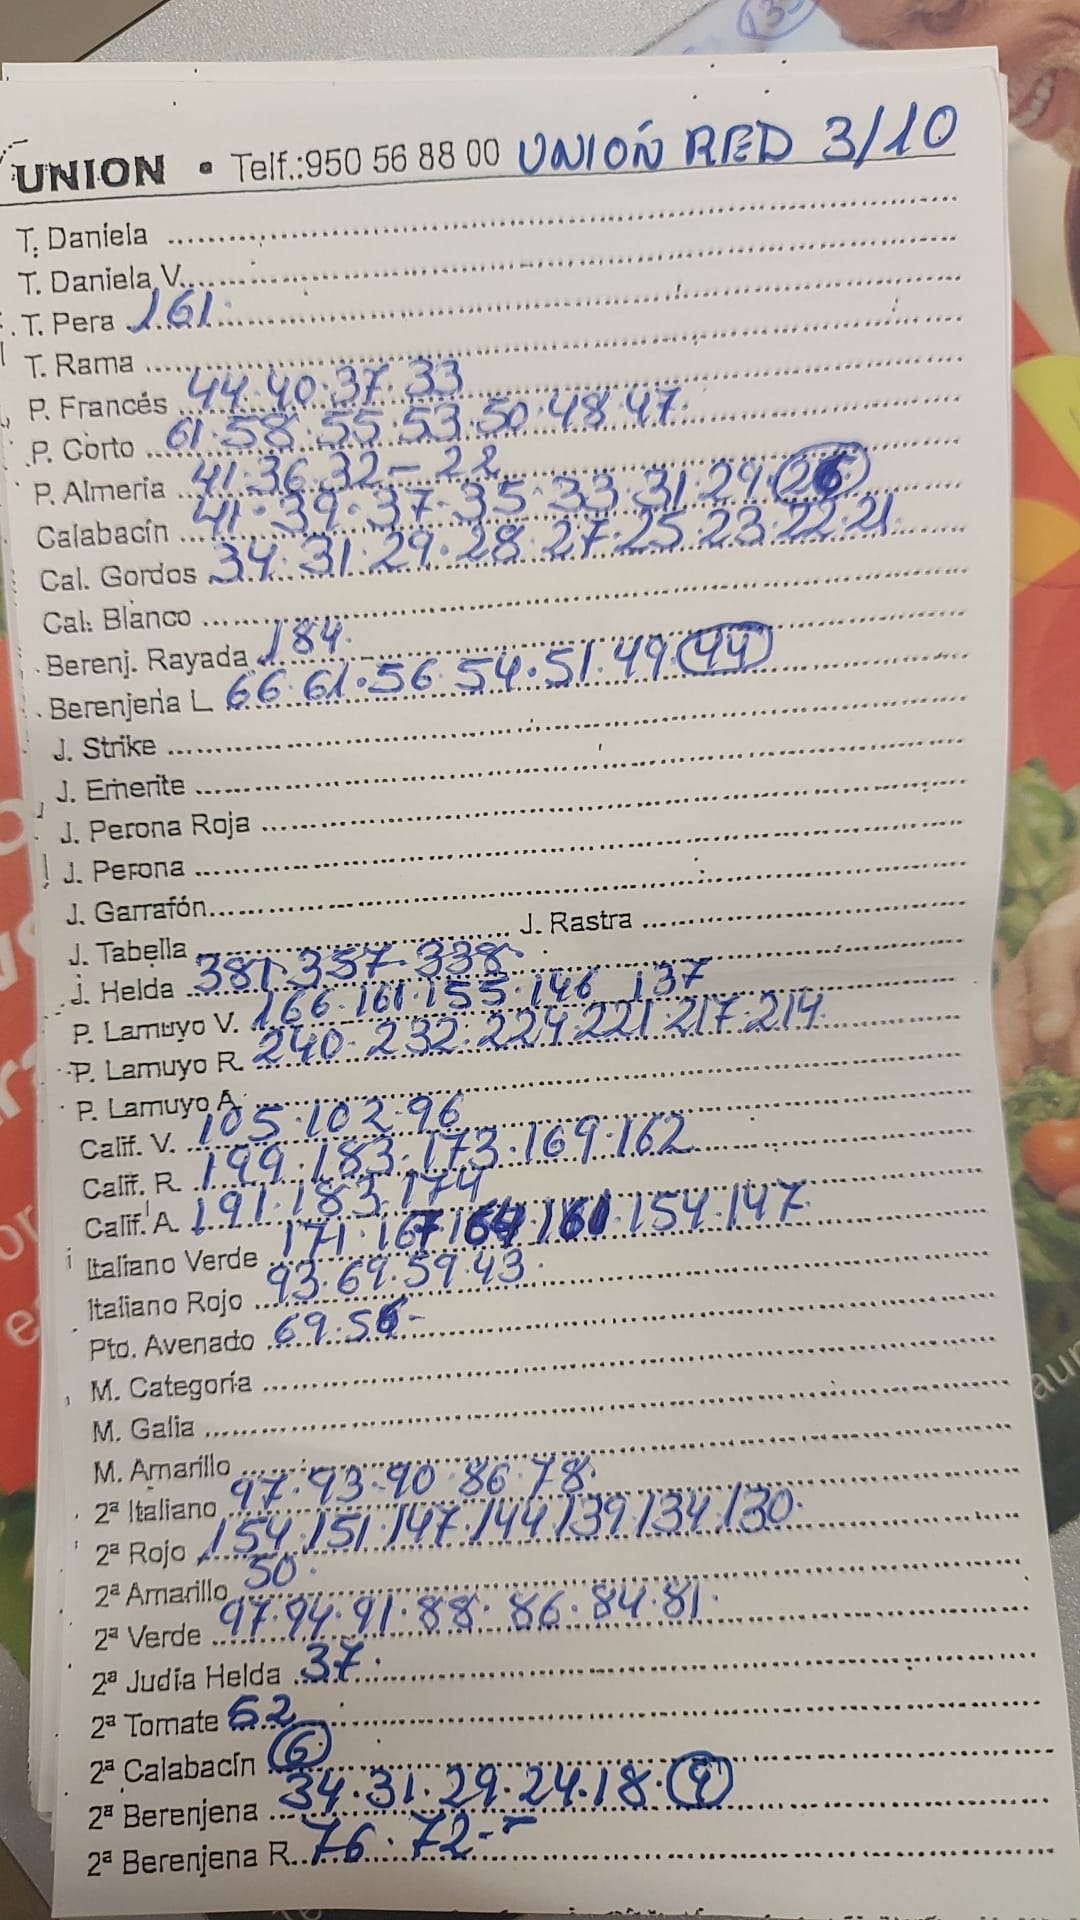 UNION • Telf.:950 56 88 00 UNIÓN RED 3/10
T. Daniela
T. Daniela V.
T. Pera 161.
T. Rama
P. Francés 44.40.37.33
P. Corto 61.58.55.53.50.48.47.
P. Almería 41.36.32-22
Calabacín 41.39.37.35.33.31.29.26
Cal. Gordos 34.31.29.28.27.25.23.22.21.
Cal. Blanco
Berenj. Rayada 184.
Berenjena L. 66.61.56.54.51.49.44
J. Strike
J. Emerite
J. Perona Roja
J. Perona
J. Garrafón
J. Tabella J. Rastra
J. Helda 381.357.338.
P. Lamuyo V. 166.161.155.146 137
P. Lamuyo R. 240.232.224.221.217.214.
P. Lamuyo A.
Calif. V. 105.102.96
Calif. R. 199.183.173.169.162
Calif. A. 191.183.174
Italiano Verde 171.167 164 160.154.147.
Italiano Rojo 93.69.59.43.
Pto. Avenado 69.56-
M. Categoría
M. Galia
M. Amarillo
2ª Italiano 97.93.90.86.78.
2ª Rojo 154.151.147.144.139.134.130.
2ª Amarillo 50.
2ª Verde 97.94.91.88.86.84.81.
2ª Judía Helda 37.
2ª Tomate 52
2ª Calabacín 6
2ª Berenjena 34.31.29.24.18.9
2ª Berenjena R. 76.72--